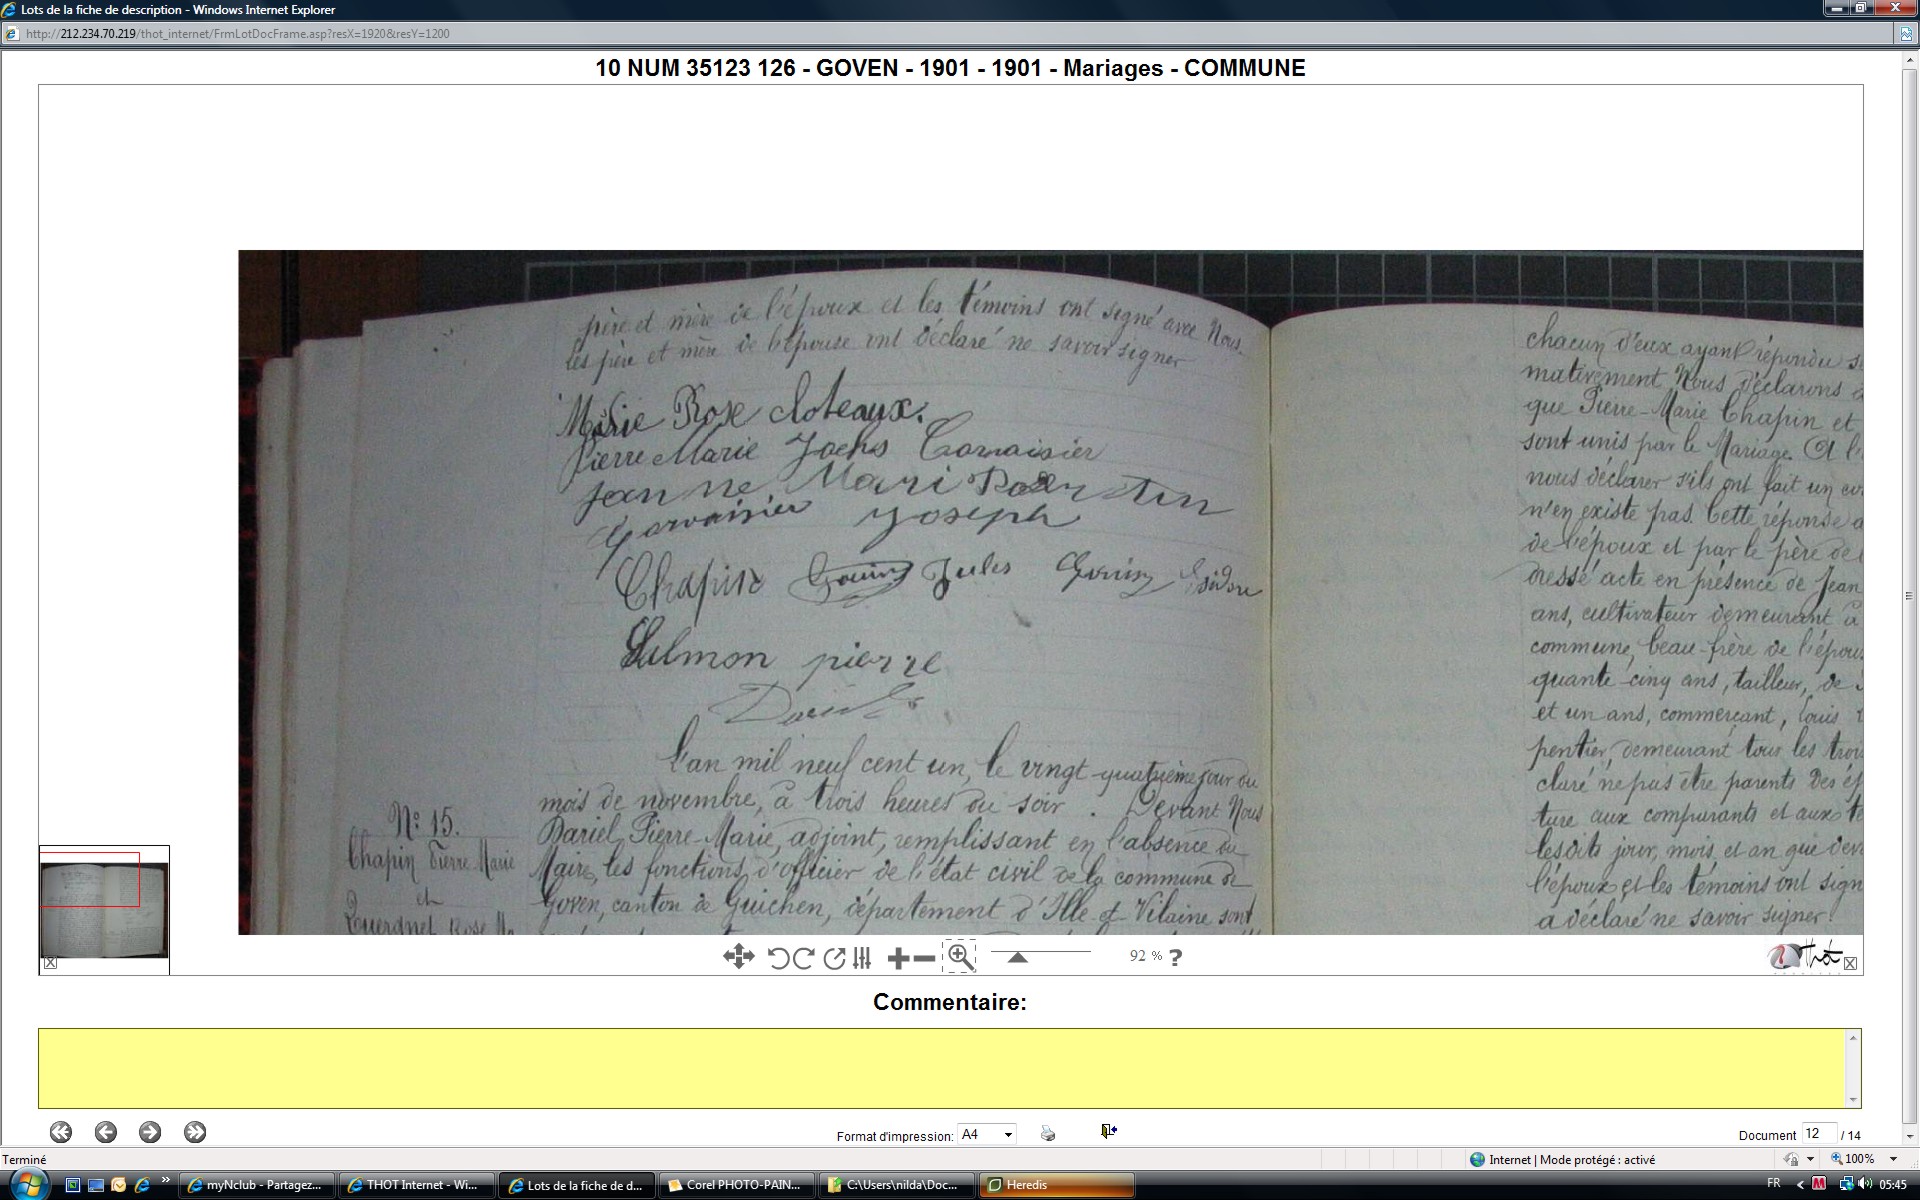 Lots de la fiche de description - Windows Internet Explorer
http://212.234.70.219/thot_internet/FrmLotDocFrame.asp?resX=1920&resY=1200
10 NUM 35123 126 - GOVEN - 1901 - 1901 - Mariages - COMMUNE
père et mère de l'époux et les témoins ont signé avec Nous
les père et mère de l'épouse ont déclaré ne savoir signer
Marie Rose cloteaux.
Pierre Marie
Jeanne Mari
Joseph
Chapin Gouin Jules Gouin
Salmon pierre
L'an mil neuf cent un, le vingt-quatrième jour du
mois de novembre, à trois heures du soir. Devant Nous
Dariel Pierre-Marie, adjoint, remplissant en l'absence du
Maire, les fonctions d'officier de l'état civil de la commune de
Goven, canton de Guichen, département d'Ille et Vilaine sont
N° 15.
Chapin Pierre Marie
et
Rose
chacun d'eux ayant répondu
mativement Nous déclarons
que Pierre-Marie Chapin et
sont unis par le Mariage. A l'
nous déclarer s'ils ont fait un
n'en existe pas. Cette réponse a
de l'époux et par le père de
dressé acte en présence de Jean
ans, cultivateur demeurant à
commune, beau-frère de l'époux
quante-cinq ans, tailleur, de
et un ans, commerçant, Louis
pentier, demeurant tous les trois
claré ne pas être parents des
ture aux comparants et aux té
lesdits jour, mois et an que
l'époux et les témoins ont sign
a déclaré ne savoir signer.
92 % ?
Thot
Commentaire:
Format d'impression: A4
Document 12 / 14
Terminé
Internet | Mode protégé : activé
100%
myNclub - Partagez...
THOT Internet - Wi...
Lots de la fiche de d...
Corel PHOTO-PAIN...
C:\Users\nilda\Doc...
Heredis
FR
05:45